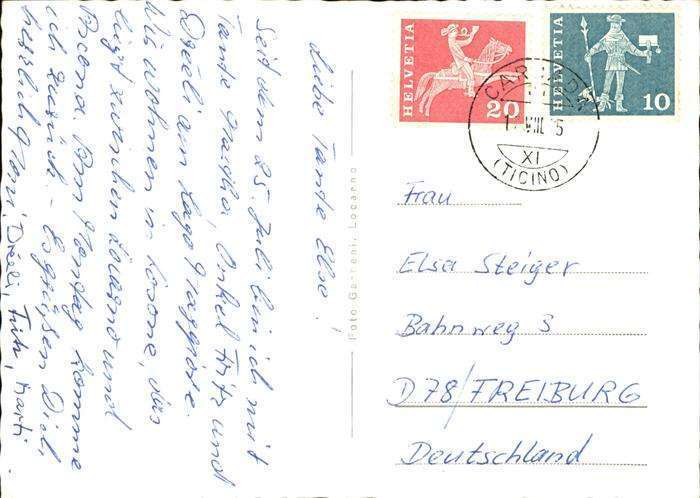 Liebe Tante Else!
Seit dem 25. Juli bin ich mit
Tante Martha, Onkel Fritz und
Dreeli am Lago Maggiore.
Wir wohnen in Losone, das
liegt zwischen Locarno und
Ascona. Am Montag komme
ich zurück. Es grüssen Dich
herzlich Dreeli, Fritz, Marti.
Foto Garbani, Locarno
HELVETIA
20
HELVETIA
10
VIII
XI
(TICINO)
Frau
Elsa Steiger
Bahnweg 3
D 78/FREIBURG
Deutschland